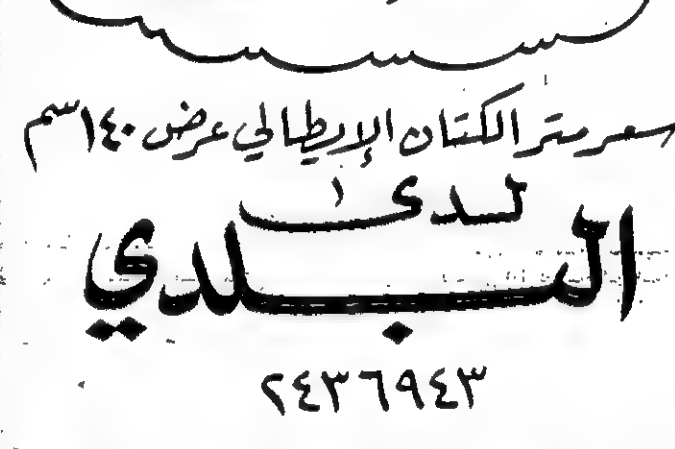 سعر متر الكتان الإيطالي عرض ١٤٠ سم
لدى
البلدي
٢٤٣٦٩٤٣